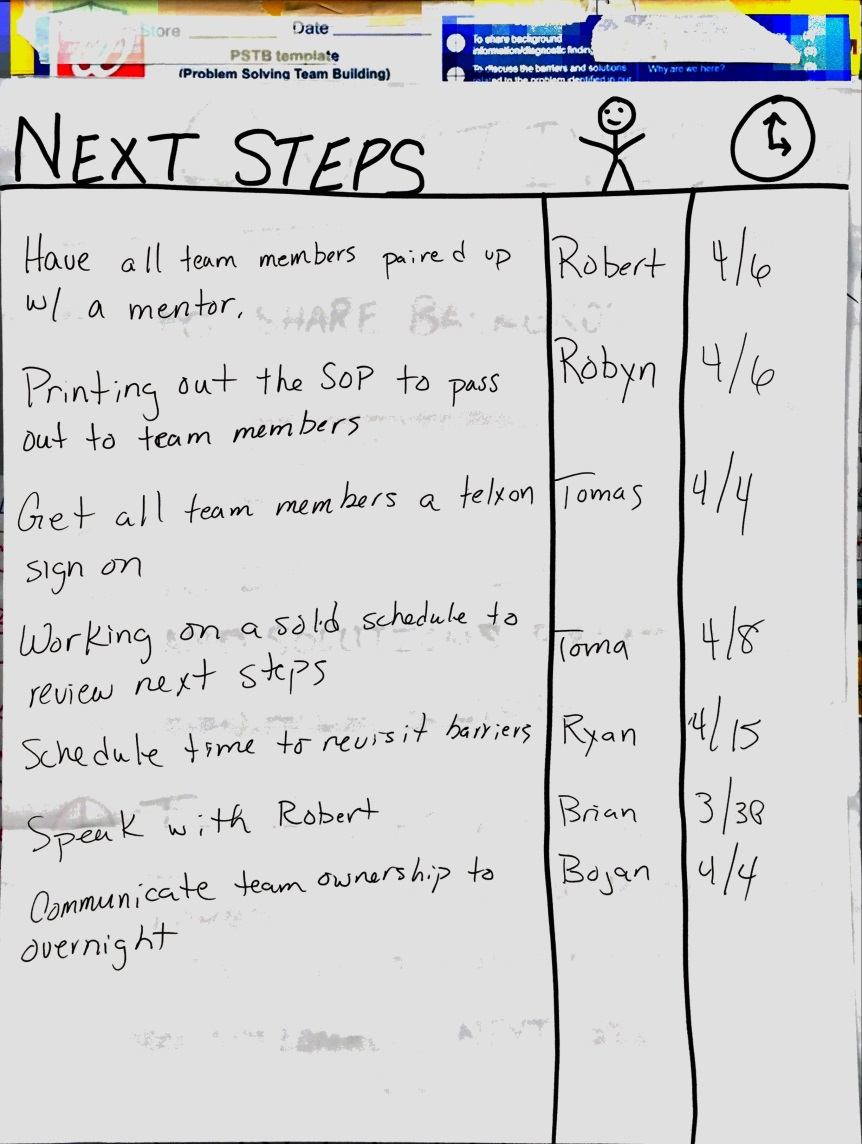 Store Date
PSTB template
(Problem Solving Team Building)
To share background
information/diagnostic finding
To discuss the barriers and solutions
related to the problem identified in our
Why are we here?
NEXT STEPS
Have all team members paired up Robert 4/6
w/ a mentor.
Printing out the SOP to pass Robyn 4/6
out to team members
Get all team members a telxon Tomas 4/4
sign on
Working on a solid schedule to Toma 4/8
review next steps
Schedule time to reuisit barriers Ryan 4/15
Speak with Robert Brian 3/30
Communicate team ownership to Bojan 4/4
overnight